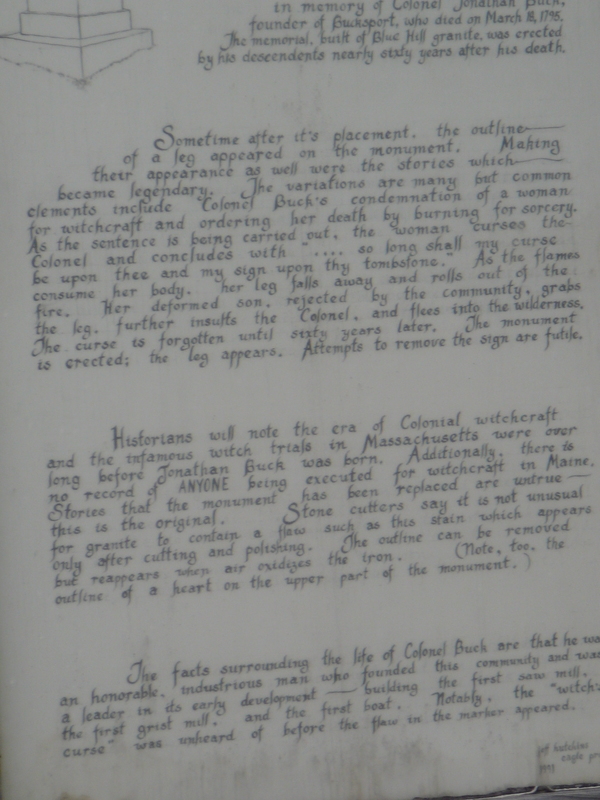 in memory of Colonel Jonathan Buck,
founder of Bucksport, who died on March 18, 1795.
The memorial, built of Blue Hill granite, was erected
by his descendents nearly sixty years after his death.
Sometime after it's placement, the outline—
of a leg appeared on the monument. Making
their appearance as well were the stories which—
became legendary. The variations are many but common
elements include Colonel Buck's condemnation of a woman
for witchcraft and ordering her death by burning for sorcery.
As the sentence is being carried out, the woman curses the—
Colonel and concludes with ".... so long shall my curse
be upon thee and my sign upon thy tombstone." As the flames
consume her body, her leg falls away and rolls out of the
fire. Her deformed son, rejected by the community, grabs
the leg, further insults the Colonel, and flees into the wilderness.
The curse is forgotten until sixty years later. The monument
is erected; the leg appears. Attempts to remove the sign are futile.
Historians will note the era of Colonial witchcraft
and the infamous witch trials in Massachusetts were over
long before Jonathan Buck was born. Additionally, there is
no record of ANYONE being executed for witchcraft in Maine.
Stories that the monument has been replaced are untrue —
this is the original. Stone cutters say it is not unusual
for granite to contain a flaw such as this stain which appears
only after cutting and polishing. The outline can be removed
but reappears when air oxidizes the iron. (Note, too, the
outline of a heart on the upper part of the monument.)
The facts surrounding the life of Colonel Buck are that he was
an honorable, industrious man who founded this community and was
a leader in its early development — building the first saw mill,
the first grist mill, and the first boat. Notably, the "witch's
curse" was unheard of before the flaw in the marker appeared.
1991